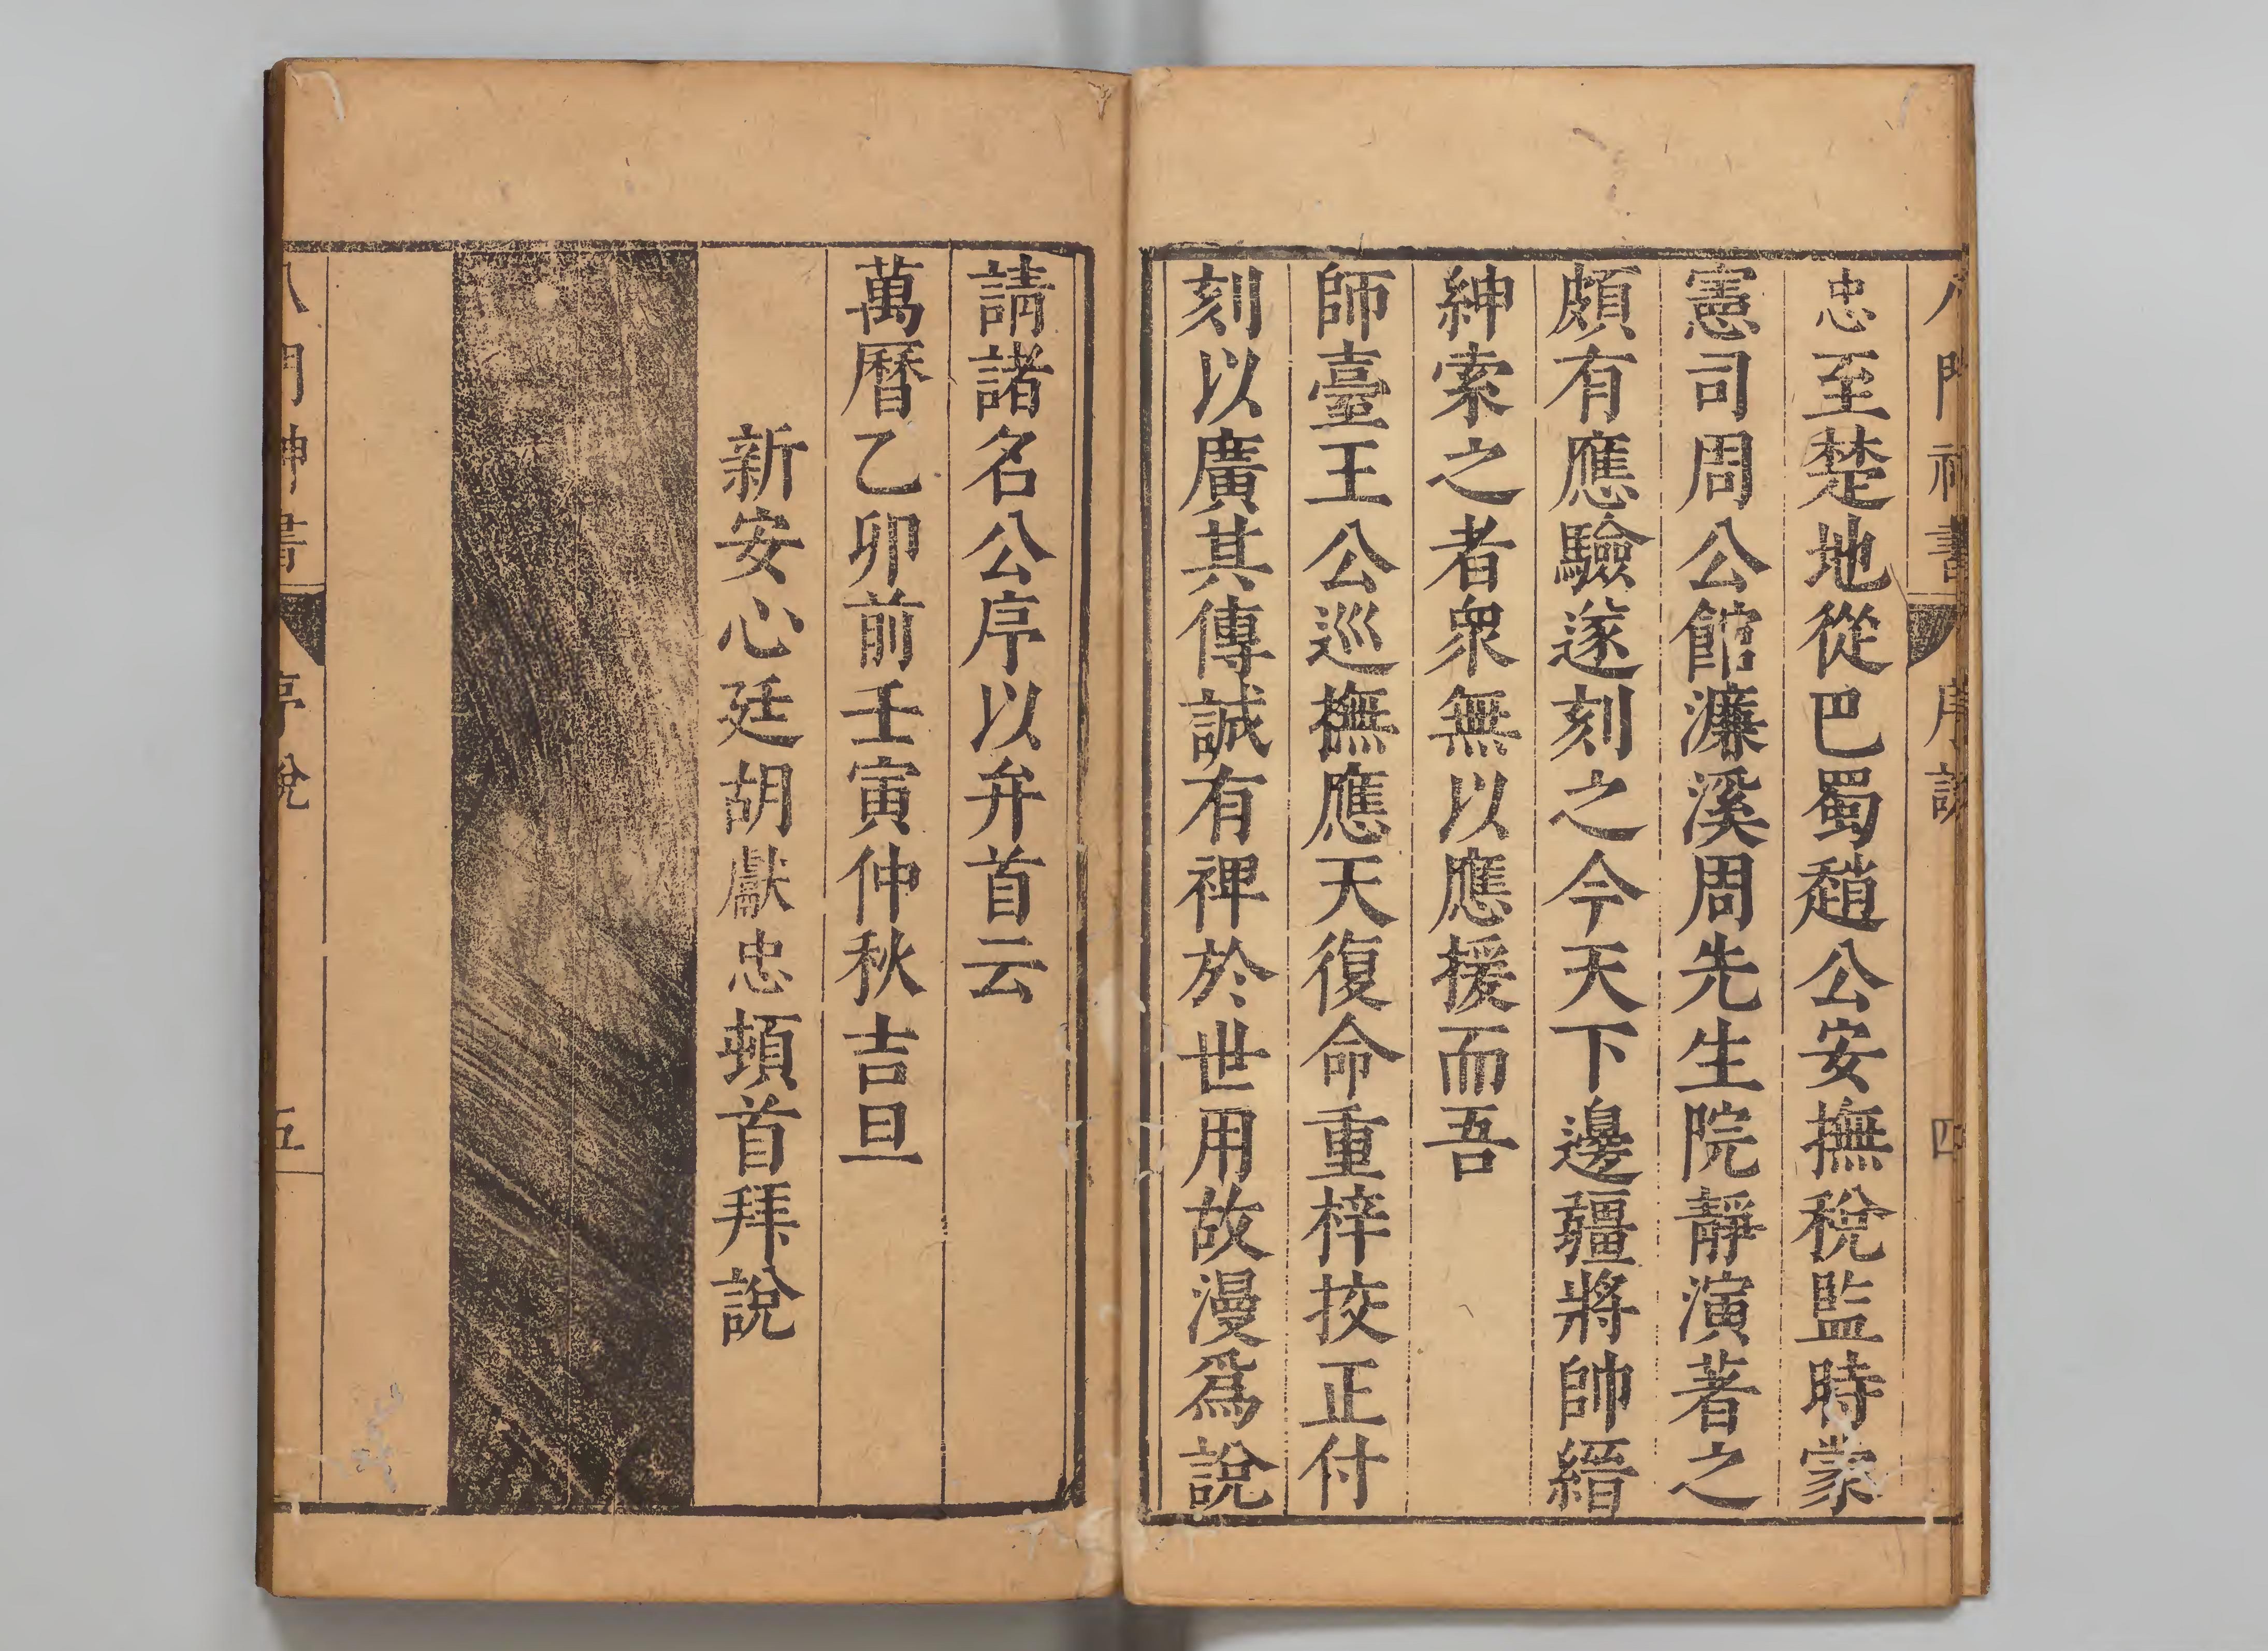 八門神書 序說 四
忠至楚地從巴蜀趙公安撫稅監時蒙
憲司周公館濂溪周先生院靜演著之
頗有應驗遂刻之今天下邊疆將帥縉
紳索之者衆無以應援而吾
師臺王公巡撫應天復命重梓挍正付
刻以廣其傳誠有裨於世用故漫爲說
請諸名公序以弁首云
萬曆乙卯前壬寅仲秋吉旦
新安心廷胡獻忠頓首拜說
八門神書 序說 五